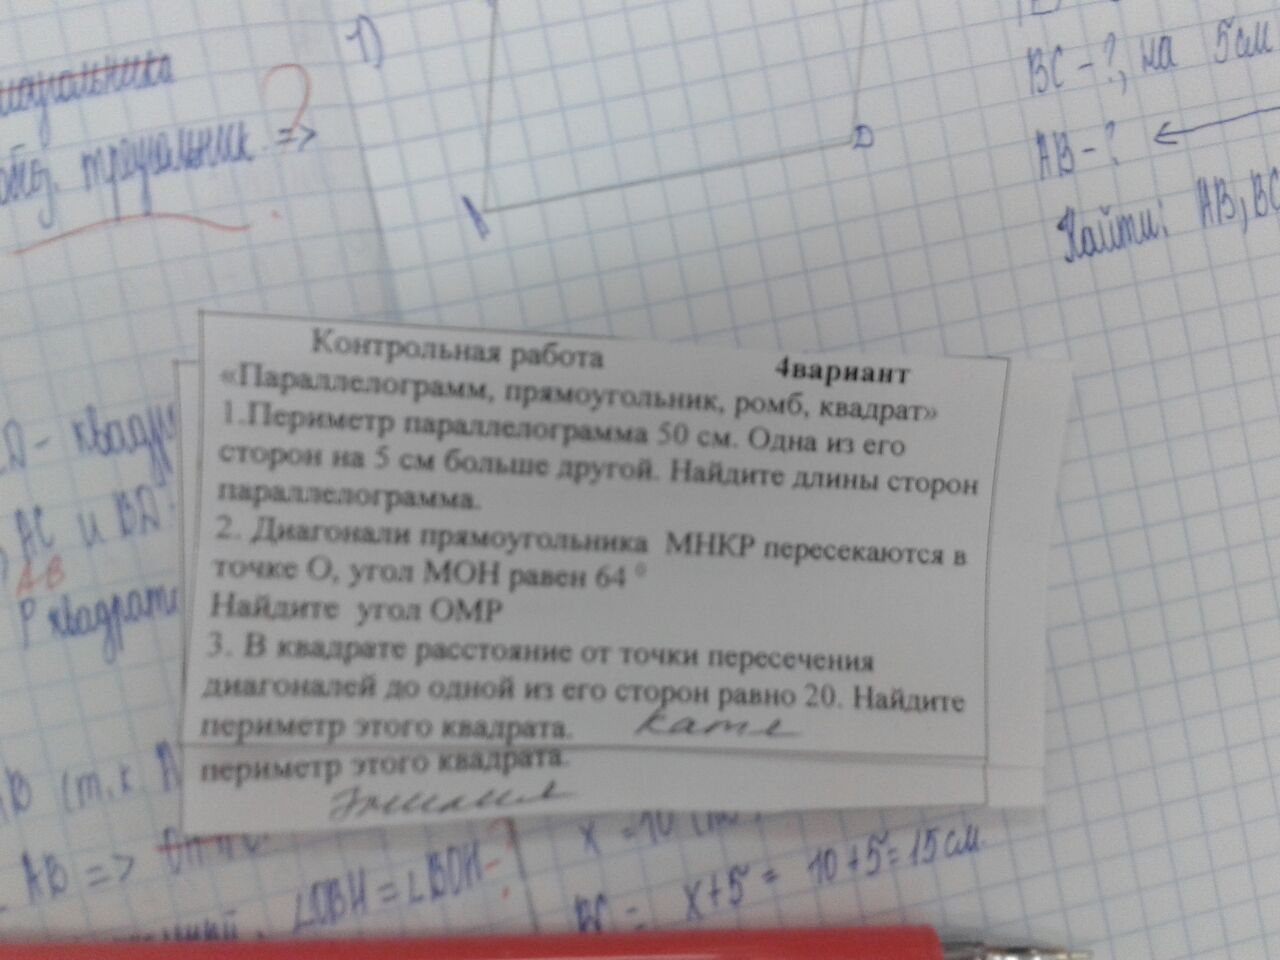 1)
треугольник =>
?
D
BC - ?, на 5 см
AB - ?
Найти: AB, BC
Контрольная работа 4вариант
«Параллелограмм, прямоугольник, ромб, квадрат»
1.Периметр параллелограмма 50 см. Одна из его
сторон на 5 см больше другой. Найдите длины сторон
параллелограмма.
2. Диагонали прямоугольника МНКР пересекаются в
точке О, угол МОН равен 64 °
Найдите угол ОМР
3. В квадрате расстояние от точки пересечения
диагоналей до одной из его сторон равно 20. Найдите
периметр этого квадрата. Кате
периметр этого квадрата.
AC и BD
AB
P квадрата
AB (т.к.
AB =>
∠OBH = ∠BOH - ?
x = 10
BC = x+5 = 10+5=15 см